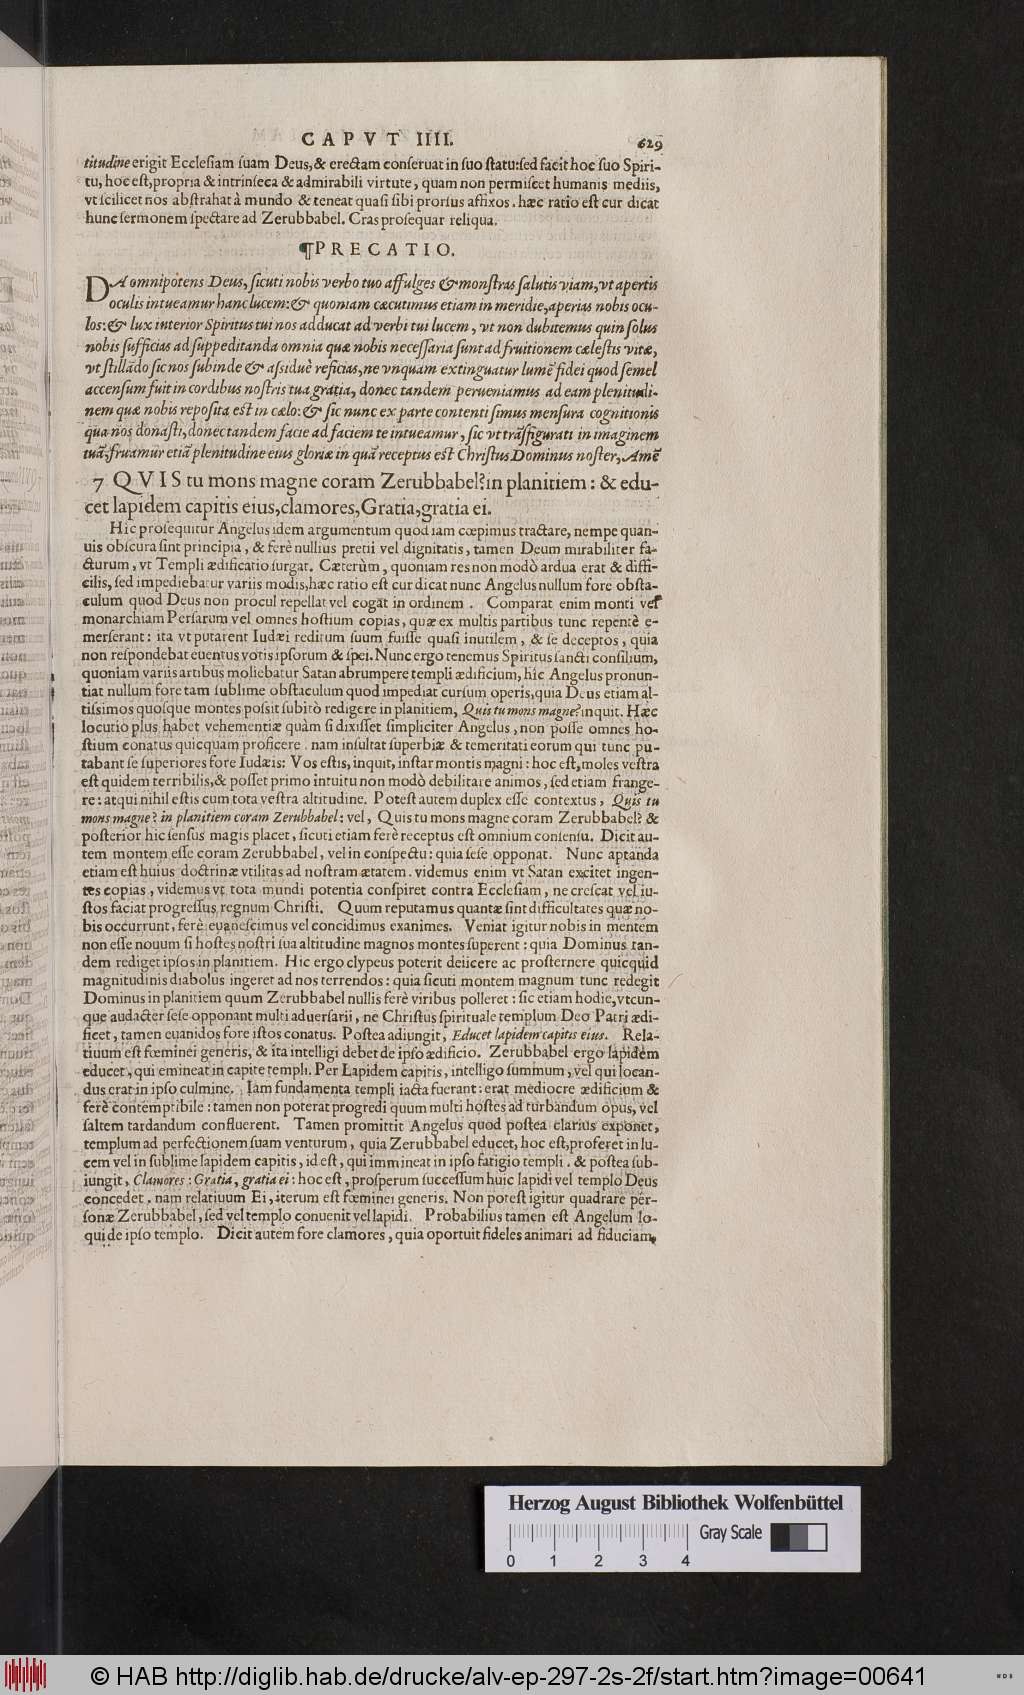 CAPVT IIII. 629
titudine erigit Ecclesiam suam Deus, & erectam conseruat in suo statu: sed facit hoc suo Spiri-
tu, hoc est, propria & intrinseca & admirabili virtute, quam non permiscet humanis mediis,
vt scilicet nos abstrahat à mundo & teneat quasi sibi prorsus affixos. hæc ratio est cur dicat
hunc sermonem spectare ad Zerubbabel. Cras prosequar reliqua.
¶PRECATIO.
DA omnipotens Deus, sicuti nobis verbo tuo affulges & monstras salutis viam, vt apertis
oculis intueamur hanc lucem: & quoniam cæcutimus etiam in meridie, aperias nobis ocu-
los: & lux interior Spiritus tui nos adducat ad verbi tui lucem, vt non dubitemus quin solus
nobis sufficias ad suppeditanda omnia quæ nobis necessaria sunt ad fruitionem cælestis vitæ,
vt stillādo sic nos subinde & assiduè reficias, ne vnquam extinguatur lumē fidei quod semel
accensum fuit in cordibus nostris tua gratia, donec tandem perueniamus ad eam plenitudi-
nem quæ nobis reposita est in cælo: & sic nunc ex parte contenti simus mensura cognitionis
qua nos donasti, donec tandem facie ad faciem te intueamur, sic vt trāsfigurati in imaginem
tuā, fruamur etiā plenitudine eius gloriæ in quā receptus est Christus Dominus noster, Amē
7 QVIS tu mons magne coram Zerubbabel? in planitiem: & edu-
cet lapidem capitis eius, clamores, Gratia, gratia ei.
Hic prosequitur Angelus idem argumentum quod iam cœpimus tractare, nempe quan-
uis obscura sint principia, & ferè nullius pretii vel dignitatis, tamen Deum mirabiliter fa-
cturum, vt Templi ædificatio surgat. Cæterùm, quoniam res non modò ardua erat & diffi-
cilis, sed impediebatur variis modis, hæc ratio est cur dicat nunc Angelus nullum fore obsta-
culum quod Deus non procul repellat vel cogat in ordinem. Comparat enim monti vel
monarchiam Persarum vel omnes hostium copias, quæ ex multis partibus tunc repentè e-
merserant: ita vt putarent Iudæi reditum suum fuisse quasi inutilem, & se deceptos, quia
non respondebat euentus votis ipsorum & spei. Nunc ergo tenemus Spiritus sancti consilium,
quoniam variis artibus moliebatur Satan abrumpere templi ædificium, hîc Angelus pronun-
tiat nullum fore tam sublime obstaculum quod impediat cursum operis, quia Deus etiam al-
tissimos quosque montes possit subitò redigere in planitiem, Quis tu mons magne? inquit. Hæc
locutio plus habet vehementiæ quàm si dixisset simpliciter Angelus, non posse omnes ho-
stium conatus quicquam proficere. nam insultat superbiæ & temeritati eorum qui tunc pu-
tabant se superiores fore Iudæis: Vos estis, inquit, instar montis magni: hoc est, moles vestra
est quidem terribilis, & posset primo intuitu non modò debilitare animos, sed etiam frange-
re: atqui nihil estis cum tota vestra altitudine. Potest autem duplex esse contextus, Quis tu
mons magne? in planitiem coram Zerubbabel: vel, Quis tu mons magne coram Zerubbabel? &
posterior hic sensus magis placet, sicuti etiam ferè receptus est omnium consensu. Dicit au-
tem montem esse coram Zerubbabel, vel in conspectu: quia sese opponat. Nunc aptanda
etiam est huius doctrinæ vtilitas ad nostram ætatem. videmus enim vt Satan excitet ingen-
tes copias, videmus vt tota mundi potentia conspiret contra Ecclesiam, ne crescat vel iu-
stos faciat progressus regnum Christi. Quum reputamus quantæ sint difficultates quæ no-
bis occurrunt, ferè euanescimus vel concidimus exanimes. Veniat igitur nobis in mentem
non esse nouum si hostes nostri sua altitudine magnos montes superent: quia Dominus tan-
dem rediget ipsos in planitiem. Hic ergo clypeus poterit deiicere ac prosternere quicquid
magnitudinis diabolus ingeret ad nos terrendos: quia sicuti montem magnum tunc redegit
Dominus in planitiem quum Zerubbabel nullis ferè viribus polleret: sic etiam hodie, vtcun-
que audacter sese opponant multi aduersarii, ne Christus spirituale templum Deo Patri ædi-
ficet, tamen euanidos fore istos conatus. Postea adiungit, Educet lapidem capitis eius. Rela-
tiuum est fœminei generis, & ita intelligi debet de ipso ædificio. Zerubbabel ergo lapidem
educet, qui emineat in capite templi. Per Lapidem capitis, intelligo summum, vel qui locan-
dus erat in ipso culmine. Iam fundamenta templi iacta fuerant: erat mediocre ædificium &
ferè contemptibile: tamen non poterat progredi quum multi hostes ad turbandum opus, vel
saltem tardandum confluerent. Tamen promittit Angelus quod postea clarius exponet,
templum ad perfectionem suam venturum, quia Zerubbabel educet, hoc est, proferet in lu-
cem vel in sublime lapidem capitis, id est, qui immineat in ipso fastigio templi. & postea sub-
iungit, Clamores: Gratia, gratia ei: hoc est, prosperum successum huic lapidi vel templo Deus
concedet. nam relatiuum Ei, iterum est fœminei generis. Non potest igitur quadrare per-
sonæ Zerubbabel, sed vel templo conuenit vel lapidi. Probabilius tamen est Angelum lo-
qui de ipso templo. Dicit autem fore clamores, quia oportuit fideles animari ad fiduciam,
Herzog August Bibliothek Wolfenbüttel
Gray Scale
0 1 2 3 4
© HAB http://diglib.hab.de/drucke/alv-ep-297-2s-2f/start.htm?image=00641